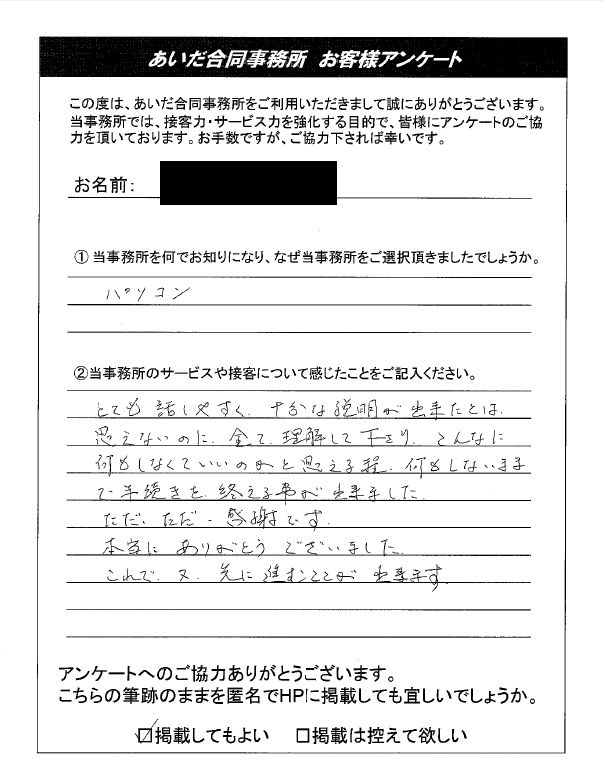 あいだ合同事務所 お客様アンケート
この度は、あいだ合同事務所をご利用いただきまして誠にありがとうございます。
当事務所では、接客力・サービス力を強化する目的で、皆様にアンケートのご協
力を頂いております。お手数ですが、ご協力下されば幸いです。
お名前:
①当事務所を何でお知りになり、なぜ当事務所をご選択頂きましたでしょうか。
パソコン
②当事務所のサービスや接客について感じたことをご記入ください。
とても 話しやすく、十分な説明が出来たとは、
思えないのに、全て、理解して下さり、こんなに
何もしなくていいのかと思える程、何もしないまま
で手続きを、終える事が出来ました。
ただ、ただ、感謝です。
本当に ありがとう ございました。
これで、又、先に進むことが 出来ます。
アンケートへのご協力ありがとうございます。
こちらの筆跡のままを匿名でHPに掲載しても宜しいでしょうか。
☑掲載してもよい □掲載は控えて欲しい